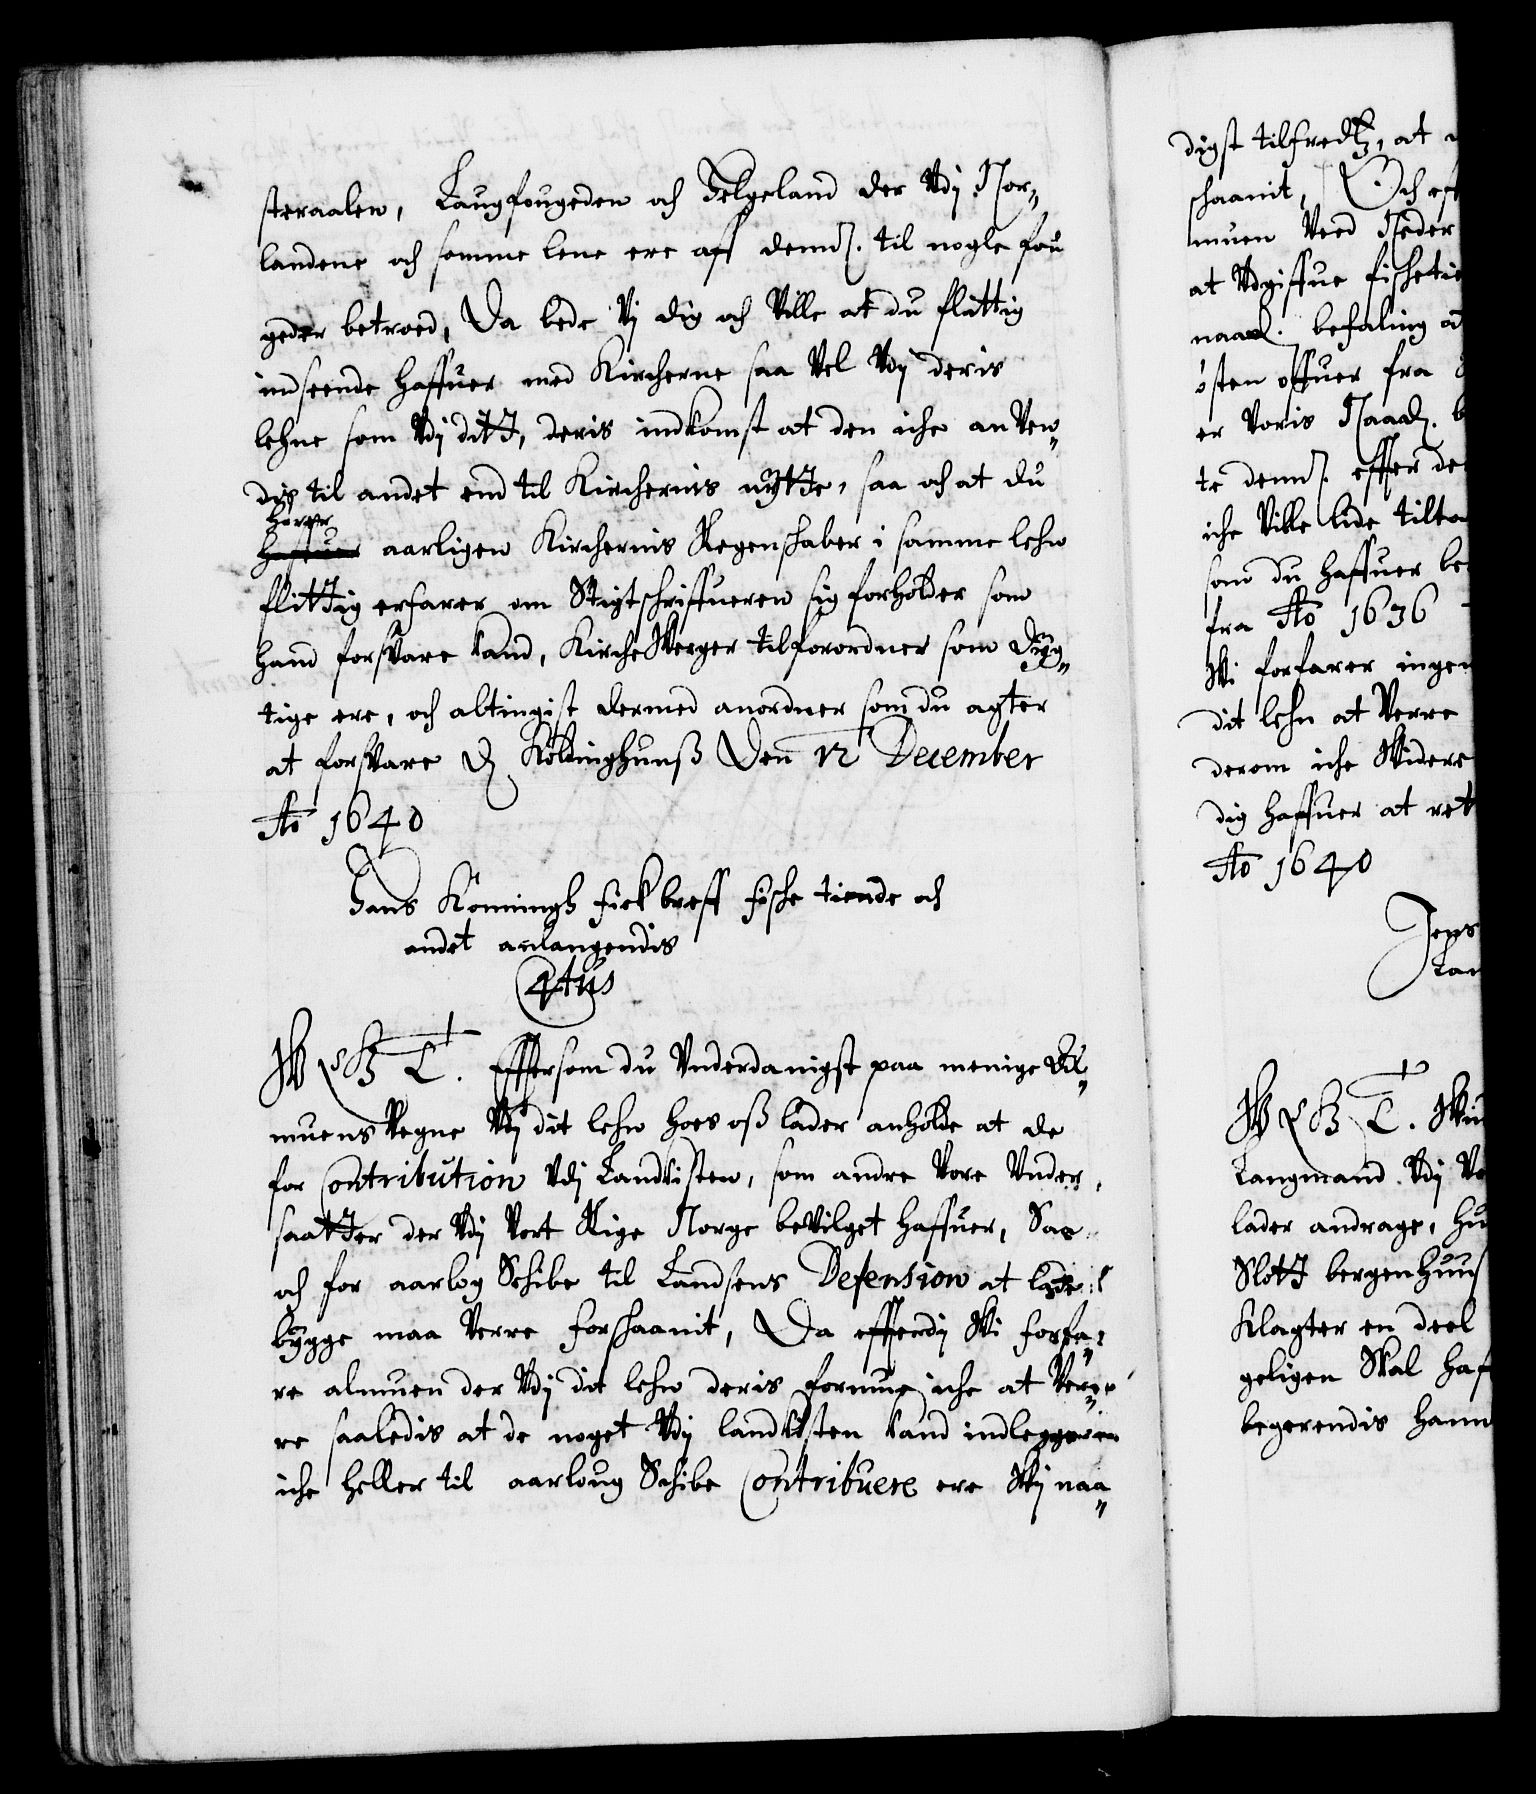 steraalen, Laugfougeden och Helgeland der Udj Nor„
landene och somme lene ere aff dennd. til nogle fou
geder betroed, Da bede Vj dig och Ville at du flittig
indseende haffuer med Kircherne saa Vel Vdj deris
lehne som Vdj ditt, deris indkomst at den iche anVen„
dis til andet end til Kirchernis nÿtte, saa och at du
hører
haffuer aarligen Kirchernis Regenschaber i samme lehn
flittig erfarer om Stigtschriffueren sig forholder som
hand forsVare kand, KircheVerger tilforordner som dÿg„
tige ere, och altingist dermed anordner som du agter
at forsVare D Koldinghuuß Den 12 December
Ao 1640
Hans Konningh fick breff fische tiende och
andet anlangendis
4tus
W G T. Efftersom du Vnderdanigst paa menige Al„
muens Vegne Vdj dit lehn hoes oß lader anholde at de
for Contribution Vdj Landkisten, som andre Vore Vnder,
saatter der Vdj Vort Rige Norge beVilget haffuer, Saa
och for aarlog Schibe til Landsens Defension at lade
bÿgge maa Verre forschaanit, Da efftterdj Wi forfa„
re almuen der Vdj dit lehn deris formue iche at Ver„
re saaledis at de noget Vdj landkisten kand indlegge
iche heller til aarloug Schibe Contribuere ere Wj naa„
digst tilfredtz, at
schaanit, Och eff
muen Ved Neder
at Vdgiffue fischetie
naad. befaling at
østen offuer fra
er Voris Naad. b
te dennd. effter de
iche Ville lide tilta
som du haffuer be
fra Ao 1636
Wi forfarer ingen
dit lehn at Verre
derom iche Widere
dig haffuer at ret
Ao 1640
Jens
Lau
W G T. Win
Laugmand Vdj Vo
lader andrage, hu
Slott bergenhuus
Klagter en deel
geligen Skal haf
begerendis hann